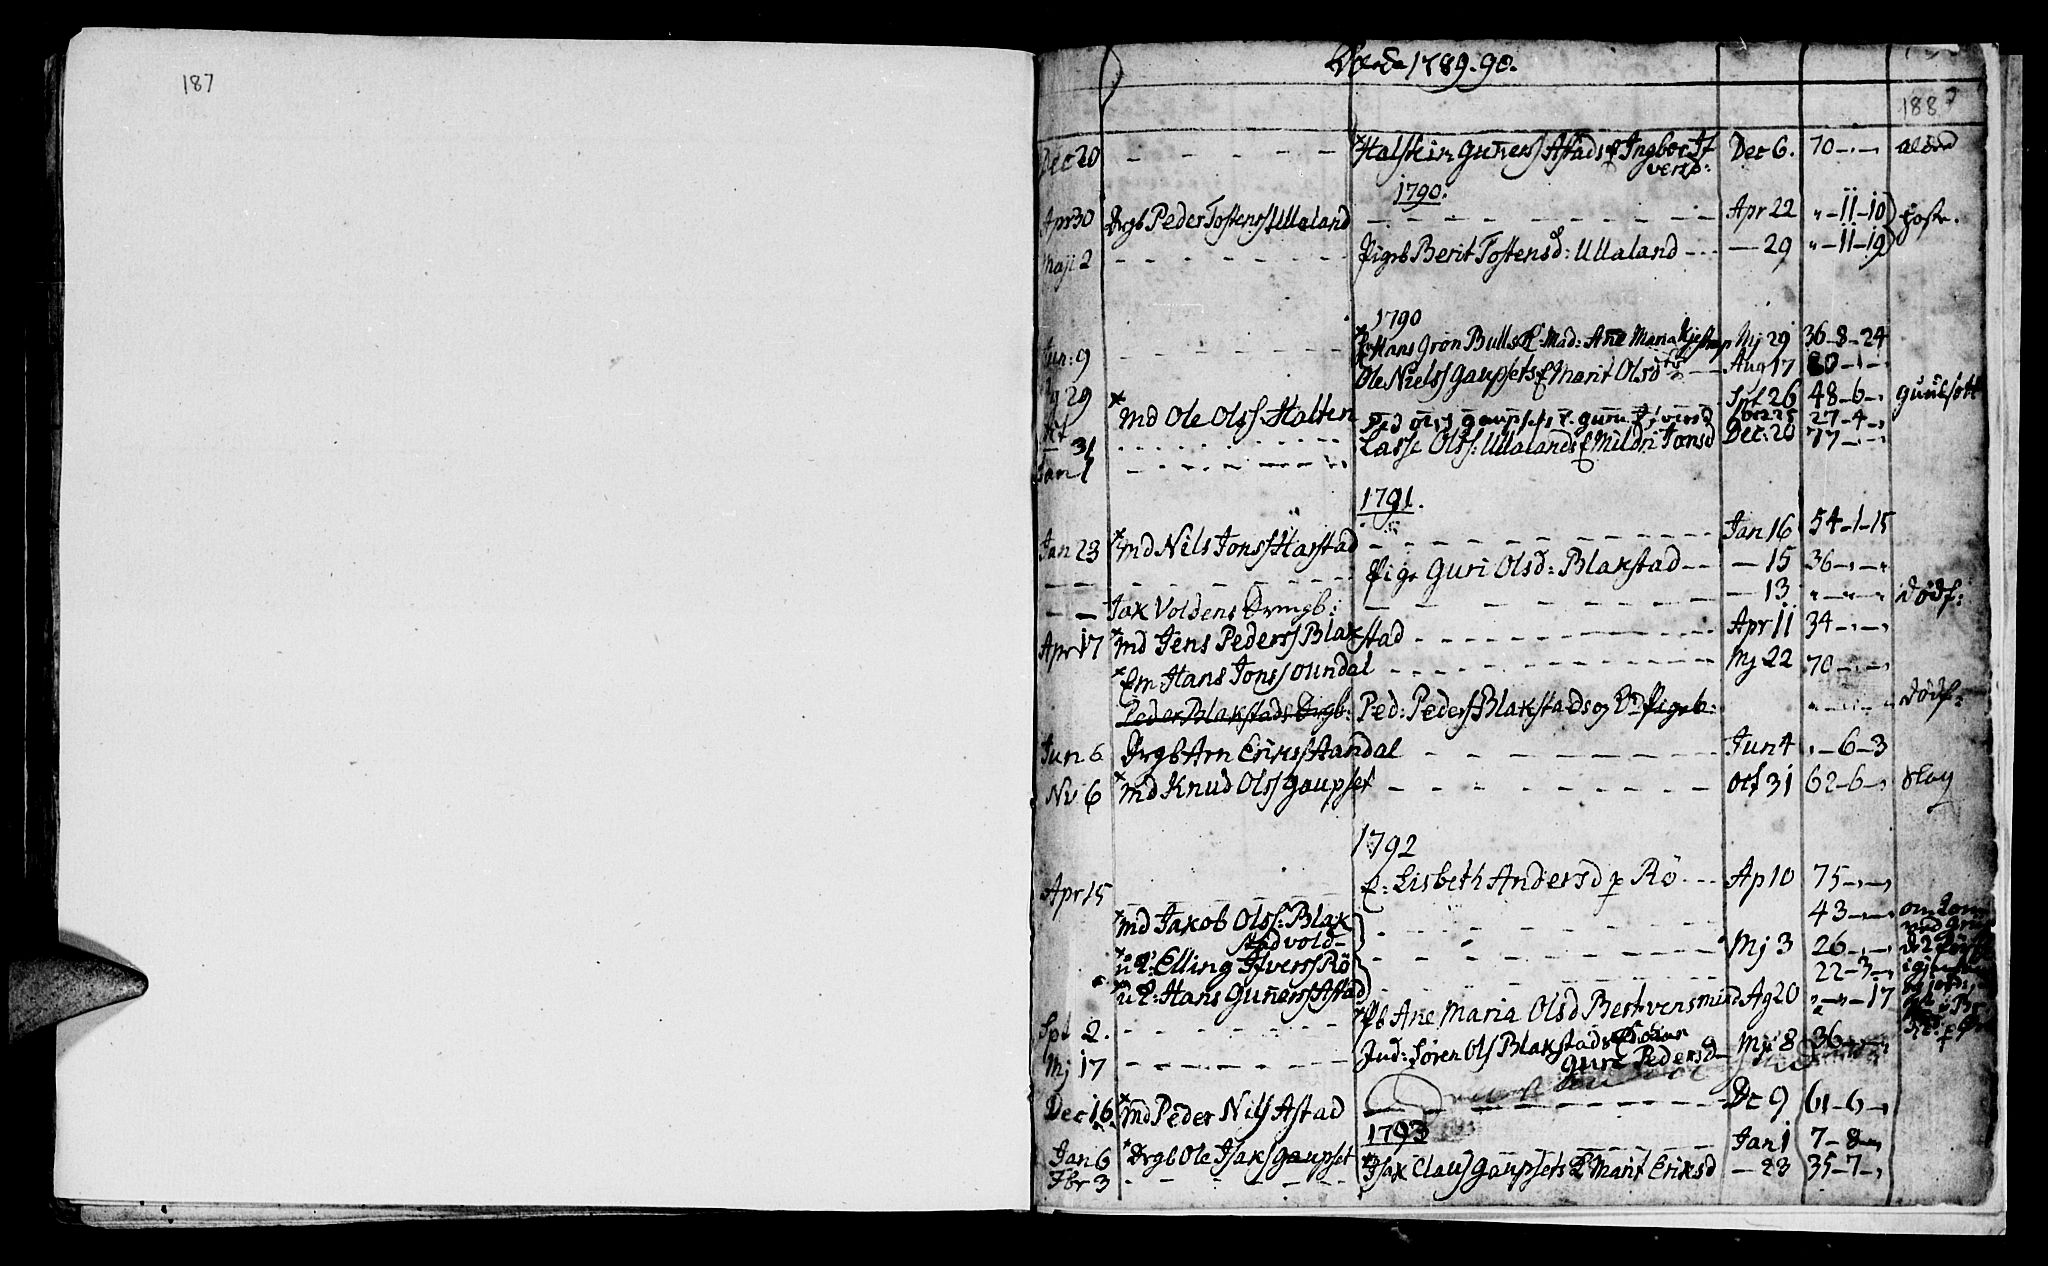 187
1789. 90.
188
Dec 20 - - - - - Halstein Guners Astads & Ingbor If Dec 6. 70 - „ - „ alderd
versd:
1790.
Apr 30 Drgb Peder Tostenss Ullaland - - - - - Apr 22 „ - 11 - 10 hoste.
Maji 2 - - - - - Pigeb Berit Tostensd: Ullaland - - - 29 „ - 11 - 19
1790
Jun: 9 - - - - - Hans Grøn Bulls K: Mad: Ane Maria Mj 29 36 - 8 - 24
Ag 29 Ole Nielss Gaupsets & Marit Olsd Aug 17 80 - „ - „
md Ole Olss Halten - - - - - Spt 26 48 - 6 - „
31 - - - - - Ped Olss Gaupsets & Guru Iversd 25 27 - 4 - „
Jan 1 - - - - - Lasse Olss: Ullalands & Mildri Jonsd Dec: 20 77 - „ - „
1791.
Jan 23 md Nils Jonss Harstad - - - - - Jan 16 54 - 1 - 15
- - - - - Pige Guri Olsd: Blakstad - - - 15 36 - „ - „
- - Jak Voldens Drengb: - - - - - - 13 „ - „ - „ dödf:
Apr 17 md Jens Pederss Blakstad - - - - - Apr 11 34 - „ - „
Em Hans Jonss Oundal - - - - - Mj 22 70 - „ - „
Peder Blakstads Drgb: Ped: Pederss Blakstads og Pigeb: „ - „ - „ dödf:
Jun 6 Drgb Arn Erikss Aandal - - - - - Jun 4 „ - 6 - 3
Nv 6 md Knud Olss Gaupset - - - - - Oct 31 62 - 6 - „ slag
1792
Apr 15 - - - - - E: Lisbeth Andersd p Rö - - - Ap 10 75 - „ - „
md Jakob Olss: Blak - - - - - 43 - „ - „ omkom
stadvold -
u k: Elling Iverss Rö - - - - - Mj 3 26 - „ - „
u k: Hans Guners Astad - - - - - 22 - 3 - „
Spt 2. - - - - - Pb Ane Maria Olsd Bestvensmind Ag 20 „ - „ - 17
Mj 17 - - - - - Jnd: Sören Ols Blakstads Guri Pedersd - Mji 8 36 - „ - „
Dec 16 md Peder Nils Astad - - - - - Dc 9 61 - 6 - „
1793
Jan 6 Drgb Ole Isaks Gaupset - - - - - Jan 1 7 - 8 - „
Fbr 3 - - - - - Isak Claus Gaupsets & Marit Eriksd - 23 35 - 7 - „